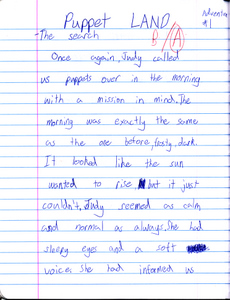 Puppet LAND
Adventure #1
The search
B A
Once again, Judy called
us puppets over in the morning
with a mission in mind. The
morning was exactly the same
as the one before, frosty, dark.
It looked like the sun
wanted to rise but it just
couldn't. Judy seemed as calm
and normal as always. She had
sleepy eyes and a soft
voice. She had informed us